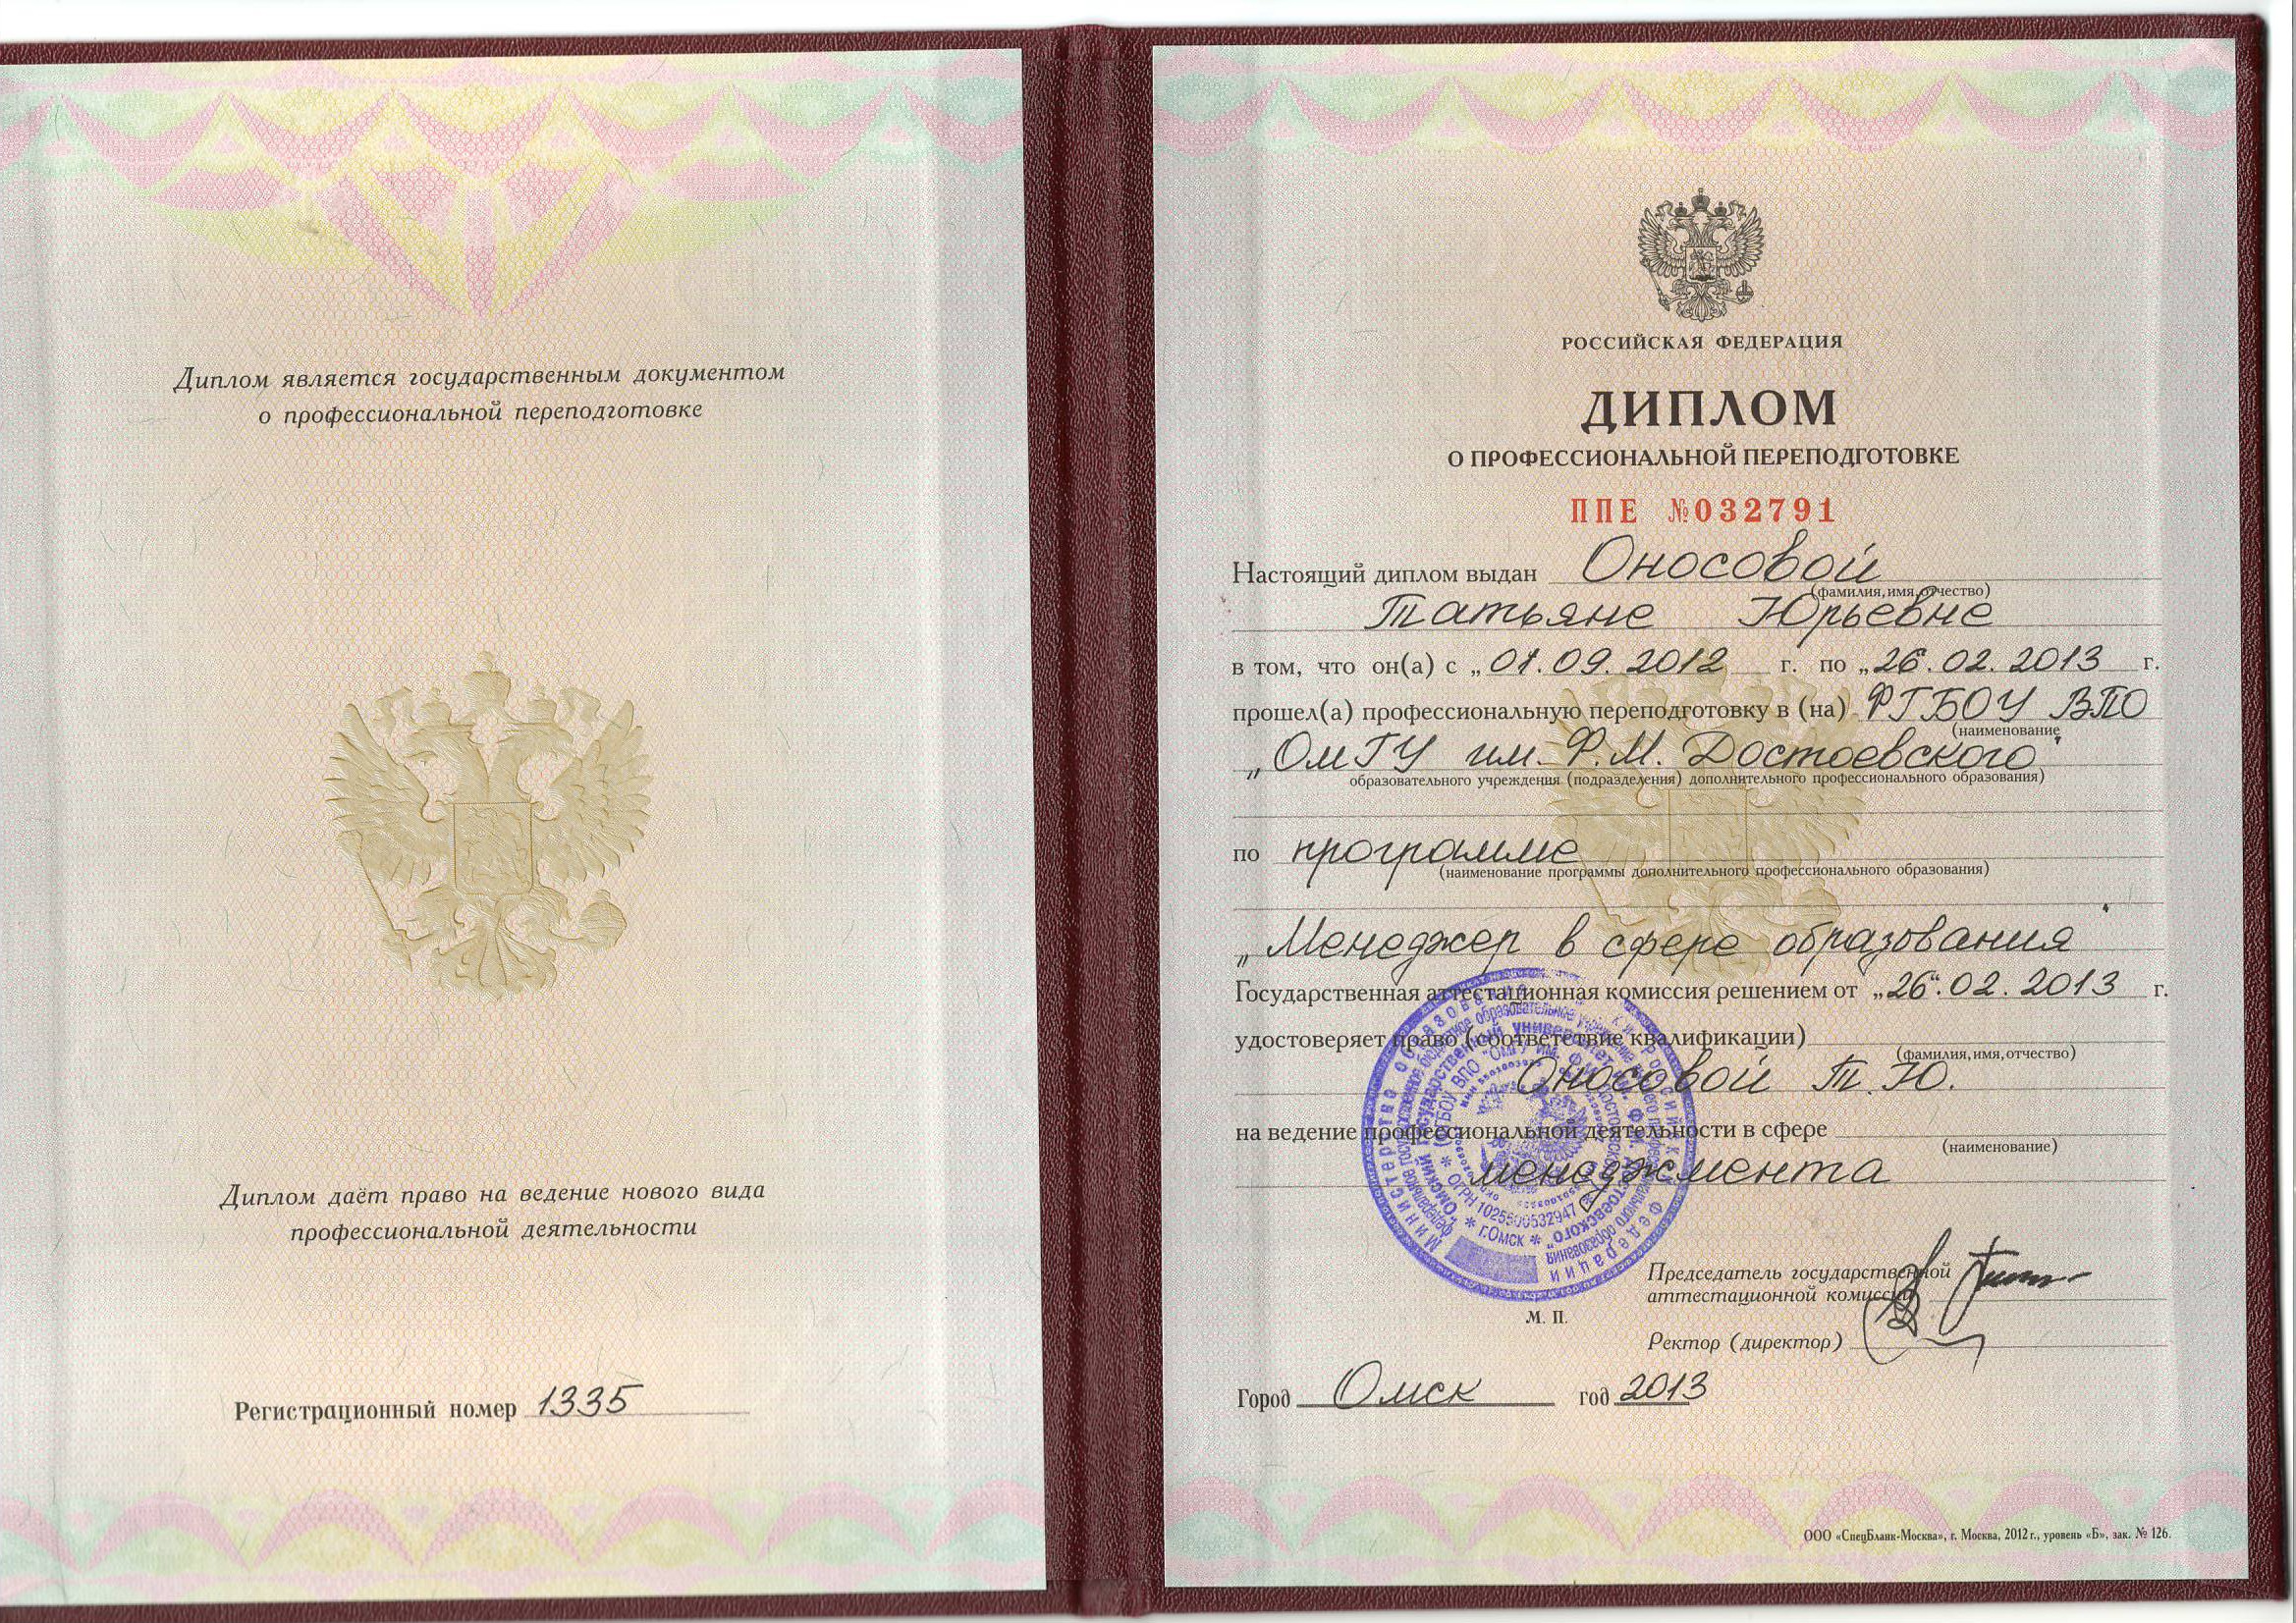 Диплом является государственным документом
о профессиональной переподготовке
Диплом даёт право на ведение нового вида
профессиональной деятельности
Регистрационный номер 1335
РОССИЙСКАЯ ФЕДЕРАЦИЯ
ДИПЛОМ
О ПРОФЕССИОНАЛЬНОЙ ПЕРЕПОДГОТОВКЕ
ППЕ №032791
Настоящий диплом выдан Оносовой
(фамилия, имя, отчество)
Татьяне Юрьевне
в том, что он(а) с „01.09.2012 г. по „26“.02.2013 г.
прошел(а) профессиональную переподготовку в (на) ФГБОУ ВПО
(наименование
„ОмГУ им. Ф.М. Достоевского"
образовательного учреждения (подразделения) дополнительного профессионального образования)
по программе
(наименование программы дополнительного профессионального образования)
„Менеджер в сфере образования"
Государственная аттестационная комиссия решением от „26“.02.2013 г.
удостоверяет право (соответствие квалификации)
(фамилия, имя, отчество)
Оносовой Т.Ю.
на ведение профессиональной деятельности в сфере
(наименование)
менеджмента
Министерство образования Российской Федерации
"Омский государственный университет им. Ф.М. Достоевского"
ОГРН 1025500532947
* г.Омск *
Председатель государственной
аттестационной комиссии
М. П.
Ректор (директор)
Город Омск год 2013
ООО «СпецБланк-Москва», г. Москва, 2012 г., уровень «Б», зак. № 126.